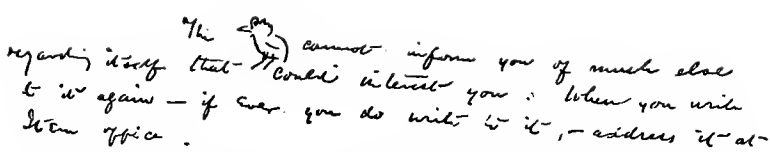 The cannot inform you of much else
regarding itself that could interest you : When you write
to it again — if ever you do write to it, — address it at
Item office .